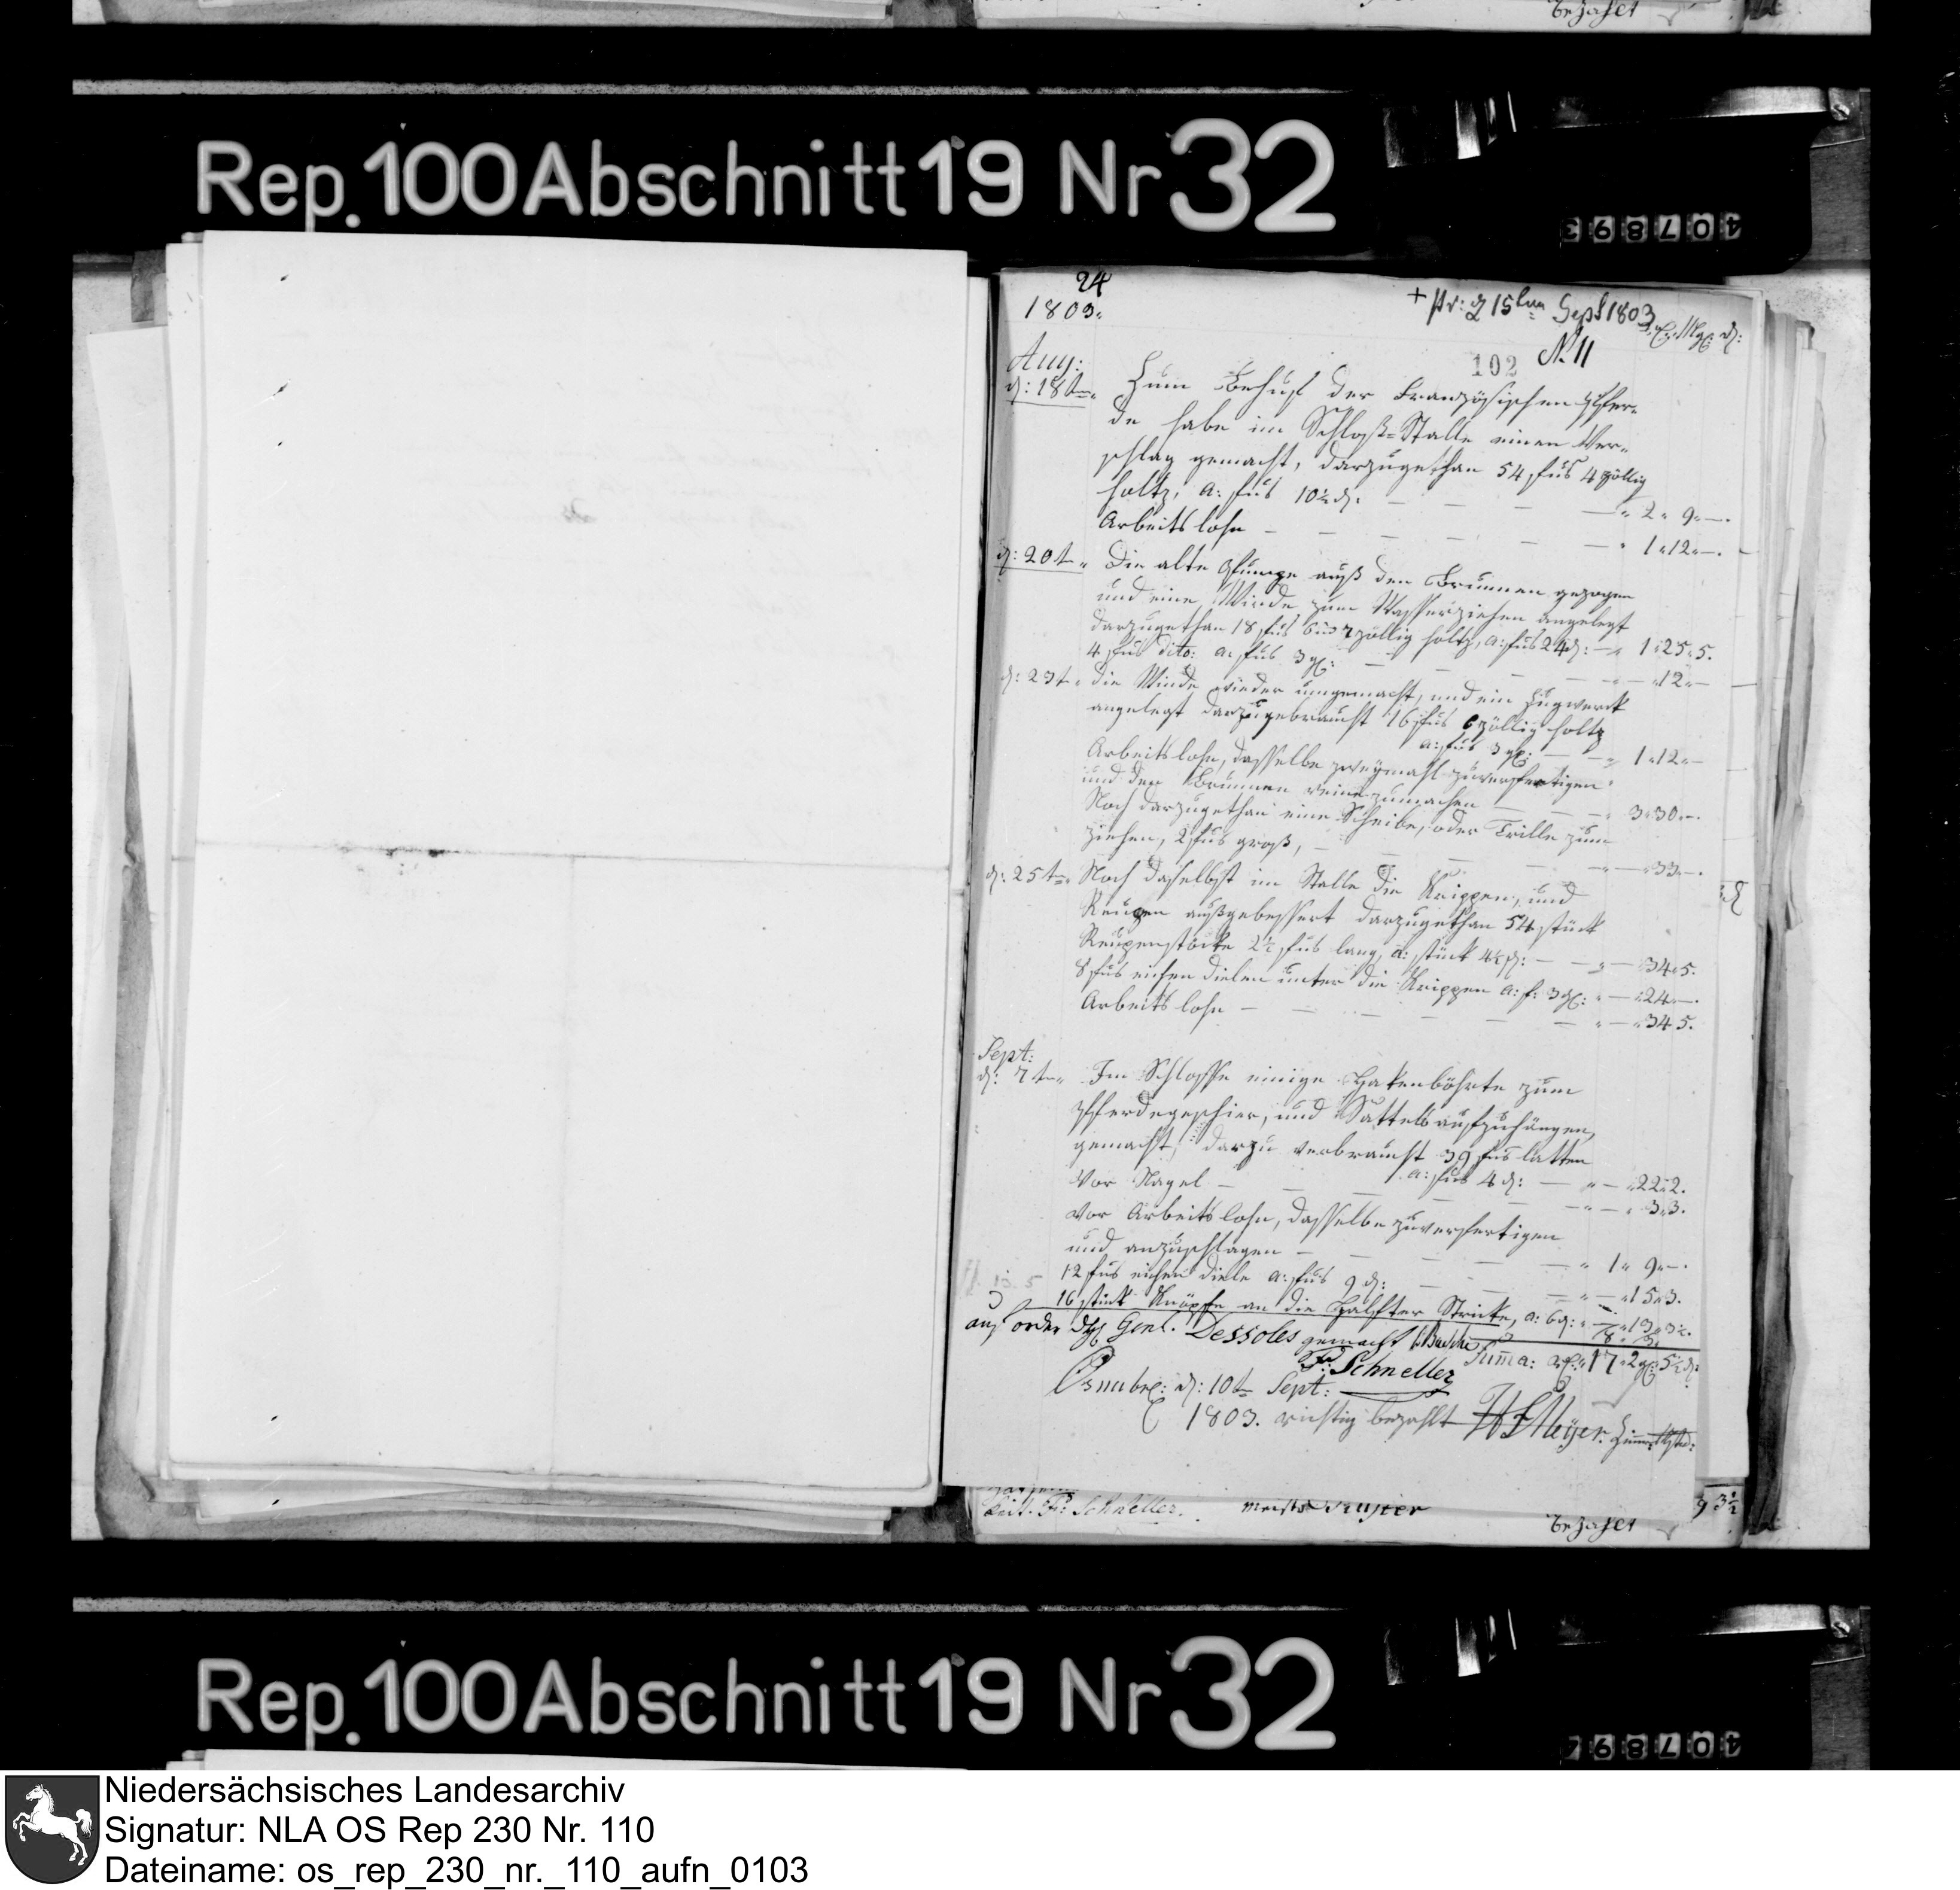 bezahlt
Rep. 100 Abschnitt 19 Nr 32
407893
24
1803.
+ pr: d 15ten Sept 1803
102 N. 11
Aug:
d: 18t. Zum Behuf der Französischen Pfer-
de habe im Schloß-Stalle einen Ver-
schlag gemacht, darzugethan 54 fus 4 zöllig
holtz, a: fus 10½ d: — — — — " 2 " 9 " —.
Arbeitslohn — — — — — — " 1 " 12 " —.
d: 20t. Die alte Pumpe auß den Brunnen gezogen
und eine Winde zum Wasserziehen angelegt
darzugethan 18 fus 6 und 7 zöllig holtz, a: fus 24 d: — " 1 " 25 " 5.
4 fus dito: a: fus 3 ß: — — — — " — " 12 " —
d: 23t. die Winde wieder umgemacht, und ein Zugwerck
angelegt darzugebraucht 16 fus 6 zöllig holtz
a: fus 3 ß: — — " 1 " 12 " —
Arbeitslohn, dasselbe zweymahl zuverfertigen
und den Brunnen reine zumachen — — " 3 " 30 " —.
Noch darzugethan eine Scheibe, oder Trille zum
ziehen, 2 fus groß, — — — — " — " 33 " —.
d: 25t. Noch daselbst im Stalle die Krippen, und
Reupen außgebessert darzugethan 54 stück
Reupenstöcke 2½ fus lang, a: stück 4½ d: — — " — " 34 " 5.
8 fus eichen dielen unter die Krippen a: f: 3 ß: " — " 24 " —.
Arbeitslohn — — — — — — " — " 34 5.
Sept:
d: 7t. Im Schlosse einige Hakenböhrte zum
Pferdegeschier, und Sattels aufzuhängen,
gemacht, darzu verbraucht 39 fus latten
a: fus 4 d: — " — " 22 " 2.
Vor Nagel — — — — — " — " 3 " 3.
Vor Arbeitslohn, dasselbe zuverfertigen
und anzuschlagen — — — — — " 1 " 9 " —.
12 fus eichen diele a: fus 9 d: — — — " — " 15 " 3.
16 stück Knöpfe an die Halfter Stricke, a: 6 d: " — " 13 " 3½.
auf order des Genl. Dessoles gemacht
Summa: 17 " 2 ß: 5½ d:
Fr: Schneller
Osnabrg: d: 10t Sept:
1803. richtig bezahlt H F Meyer. Zimmermstr:
Fr: Schneller. meister bezahlt
9 3½
Rep. 100 Abschnitt 19 Nr 32
407894
Niedersächsisches Landesarchiv
Signatur: NLA OS Rep 230 Nr. 110
Dateiname: os_rep_230_nr._110_aufn_0103